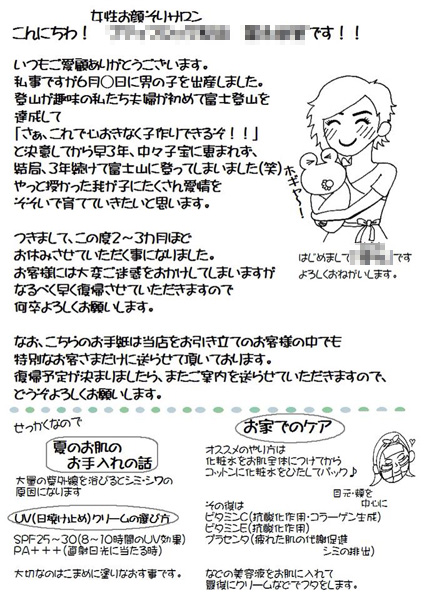 女性お顔そりサロン
こんにちわ！
です！！
いつもご愛顧ありがとうございます。
私事ですが6月〇日に男の子を出産しました。
登山が趣味の私たち夫婦が初めて富士登山を
達成して
「さぁ、これで心おきなく子作りできるぞ！！」
と決意してから早3年、中々子宝に恵まれず、
結局、3年続けて富士山に登ってしまいました(笑)
やっと授かった我が子にたくさん愛情を
そそいで育てていきたいと思います。
ホギャー！
はじめまして
です
よろしくおねがいします。
つきまして、この度2～3カ月ほど
お休みさせていただく事になりました。
お客様には大変ご迷惑をおかけしてしまいますが
なるべく早く復帰させていただきますので
何卒よろしくお願いします。
なお、こちらのお手紙は当店をお引き立てのお客様の中でも
特別なお客さまだけに送らせて頂いております。
復帰予定が決まりましたら、またご案内を送らせていただきますので、
どうぞよろしくお願いします。
せっかくなので
夏のお肌の
お手入れの話
大量の紫外線を浴びるとシミ・シワの
原因になります
UV(日焼け止め)クリームの選び方
SPF25～30(8～10時間のUV効果)
PA+++(直射日光に当たる時)
大切なのはこまめに塗りなおす事です。
お家でのケア
オススメのやり方は
化粧水をお肌全体につけてから
コットンに化粧水をひたしてパック♪
目元・頬を
中心に
その後は
ビタミンC(抗酸化作用・コラーゲン生成)
ビタミンE(抗酸化作用)
プラセンタ(疲れた肌の代謝促進
シミの排出)
などの美容液をお肌に入れて
最後にクリームなどでフタをします。